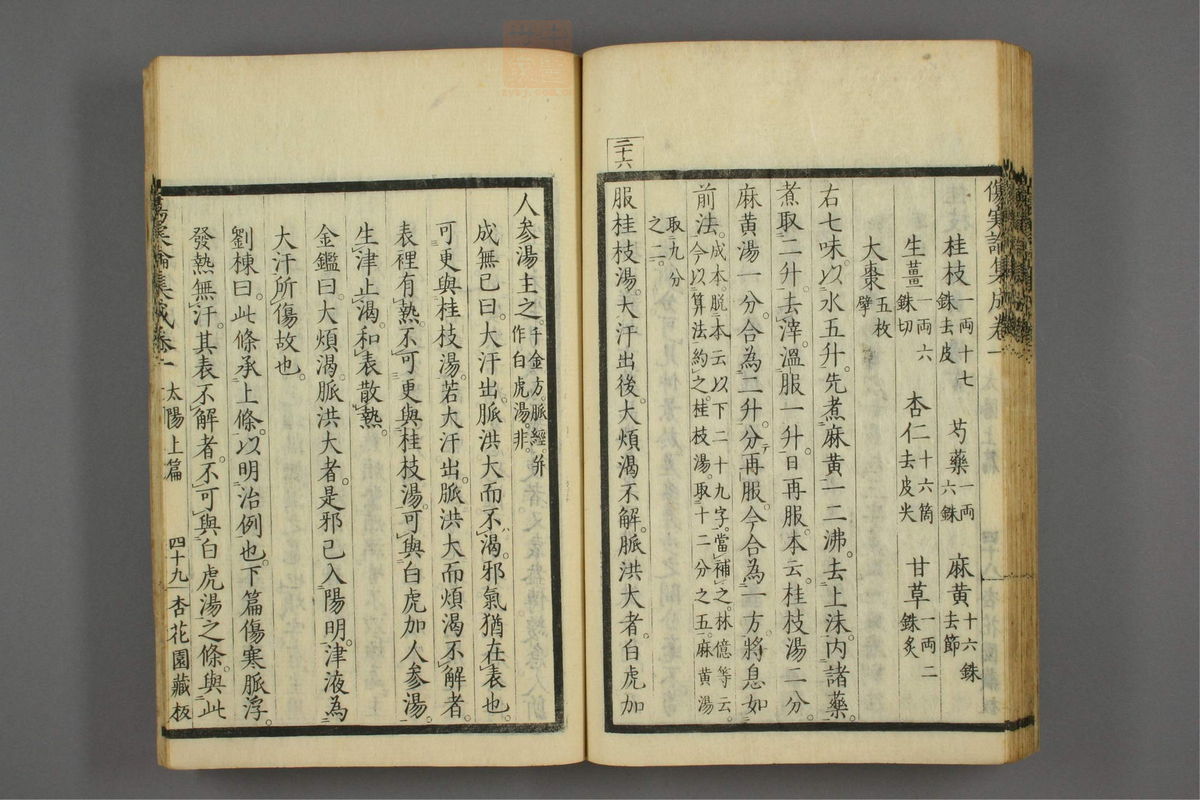 傷寒論集成卷一
桂枝一両十七銖去皮 芍藥一両六銖 麻黄十六銖去節
生薑一両六銖切 杏仁十六箇去皮尖 甘草一両二銖炙
大棗五枚擘
右七味。以水五升。先煮麻黄一二沸。去上沫。内諸藥。
煮取二升。去滓。溫服一升。日再服。本云。桂枝湯二分。
麻黄湯一分。合為二升。分再服。今合為一方。將息如
前法。成本。脱本云以下二十九字。當補之。林億等云。今以算法約之。桂枝湯。取十二分之五。麻黄湯
取九分之二。
三十六
服桂枝湯。大汗出後。大煩渴不解。脈洪大者。白虎加
人參湯主之。千金方。脈經。并作白虎湯。非。
成無已曰。大汗出。脈洪大而不渴。邪氣猶在表也。
可更與桂枝湯。若大汗出。脈洪大而煩渴不解者。
表裡有熱。不可更與桂枝湯。可與白虎加人參湯。
生津止渴。和表散熱。
金鑑曰。大煩渴脈洪大者。是邪已入陽明。津液為
大汗所傷故也。
劉棟曰。此條承上條。以明治例也。下篇傷寒脈浮。
發熱無汗。其表不解者。不可與白虎湯之條。與此
傷寒論集成卷一 太陽上篇 四十九 杏花園藏板